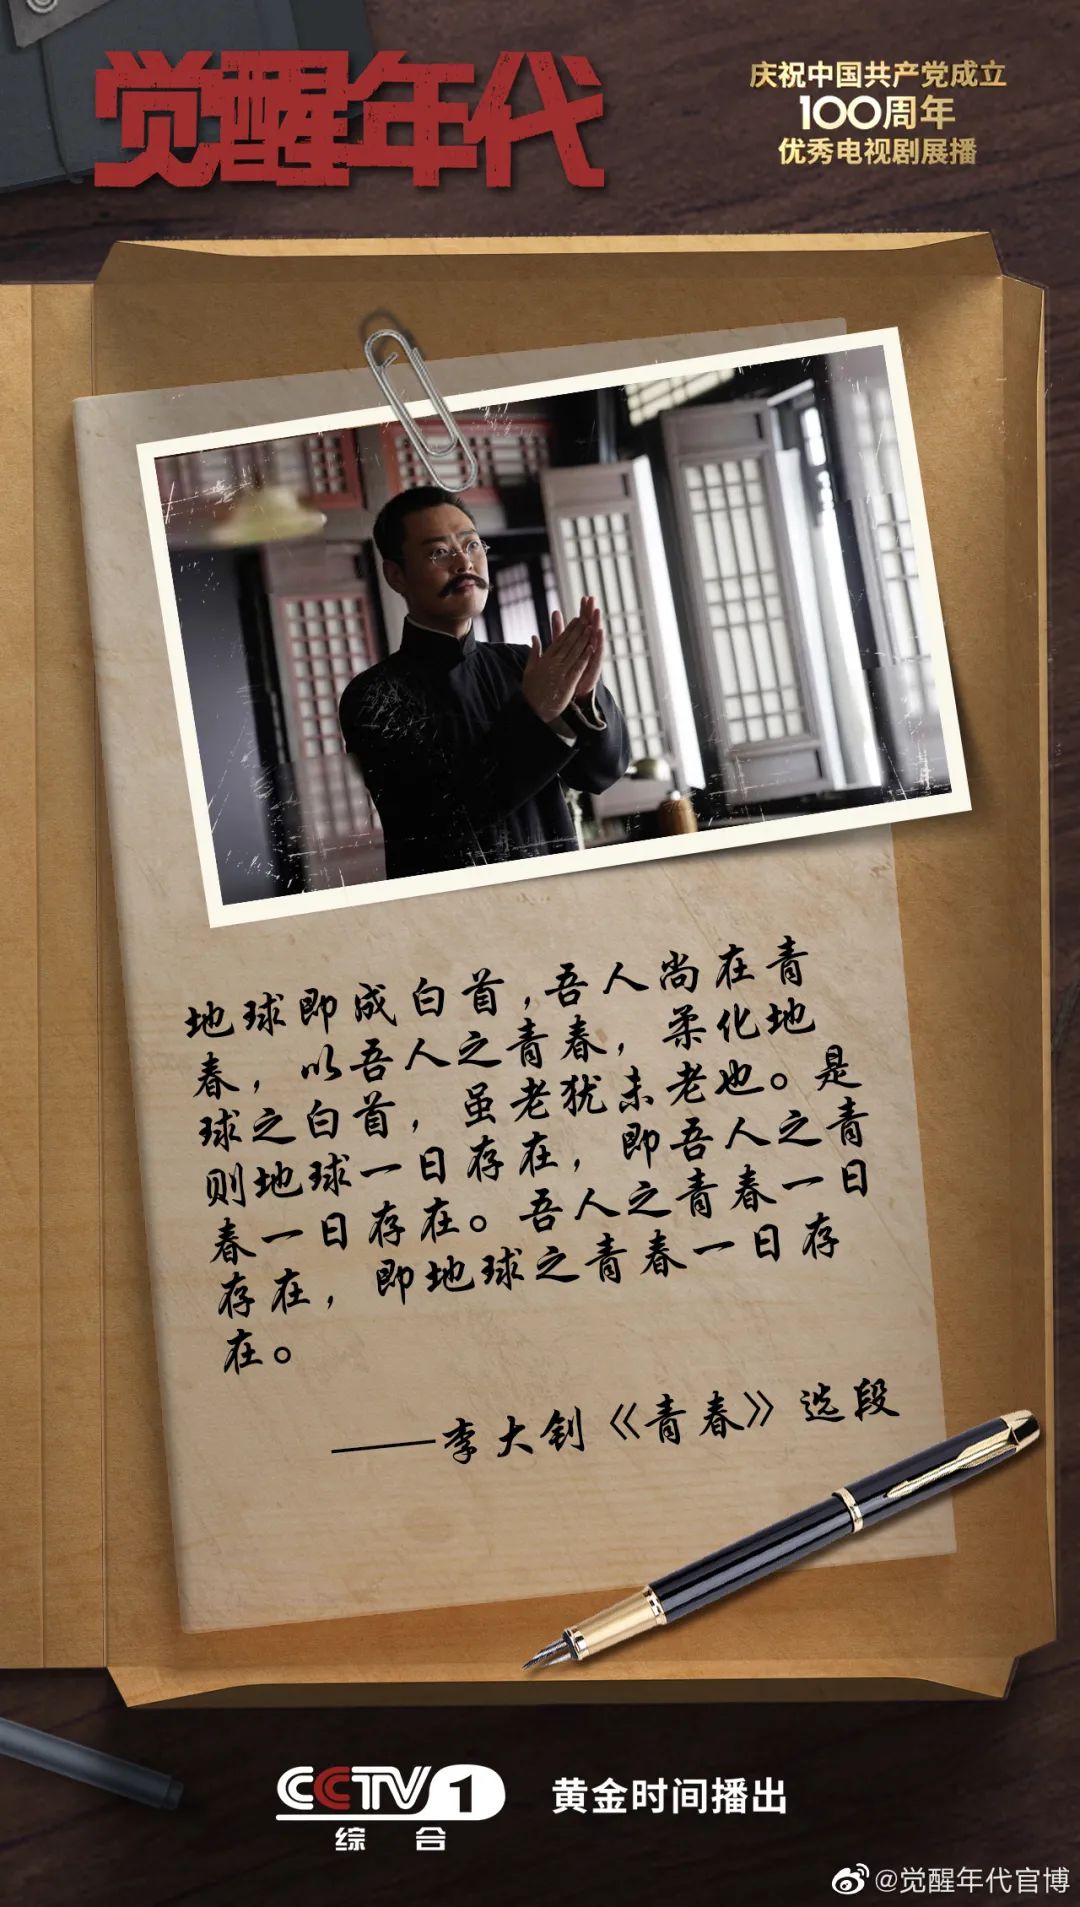 觉醒年代
庆祝中国共产党成立
100周年
优秀电视剧展播
地球即成白首,吾人尚在青
春，以吾人之青春，柔化地
球之白首，虽老犹未老也。是
则地球一日存在，即吾人之青
春一日存在。吾人之青春一日
存在，即地球之青春一日存
在。
——李大钊《青春》选段
CCTV 1
综合
黄金时间播出
@觉醒年代官博